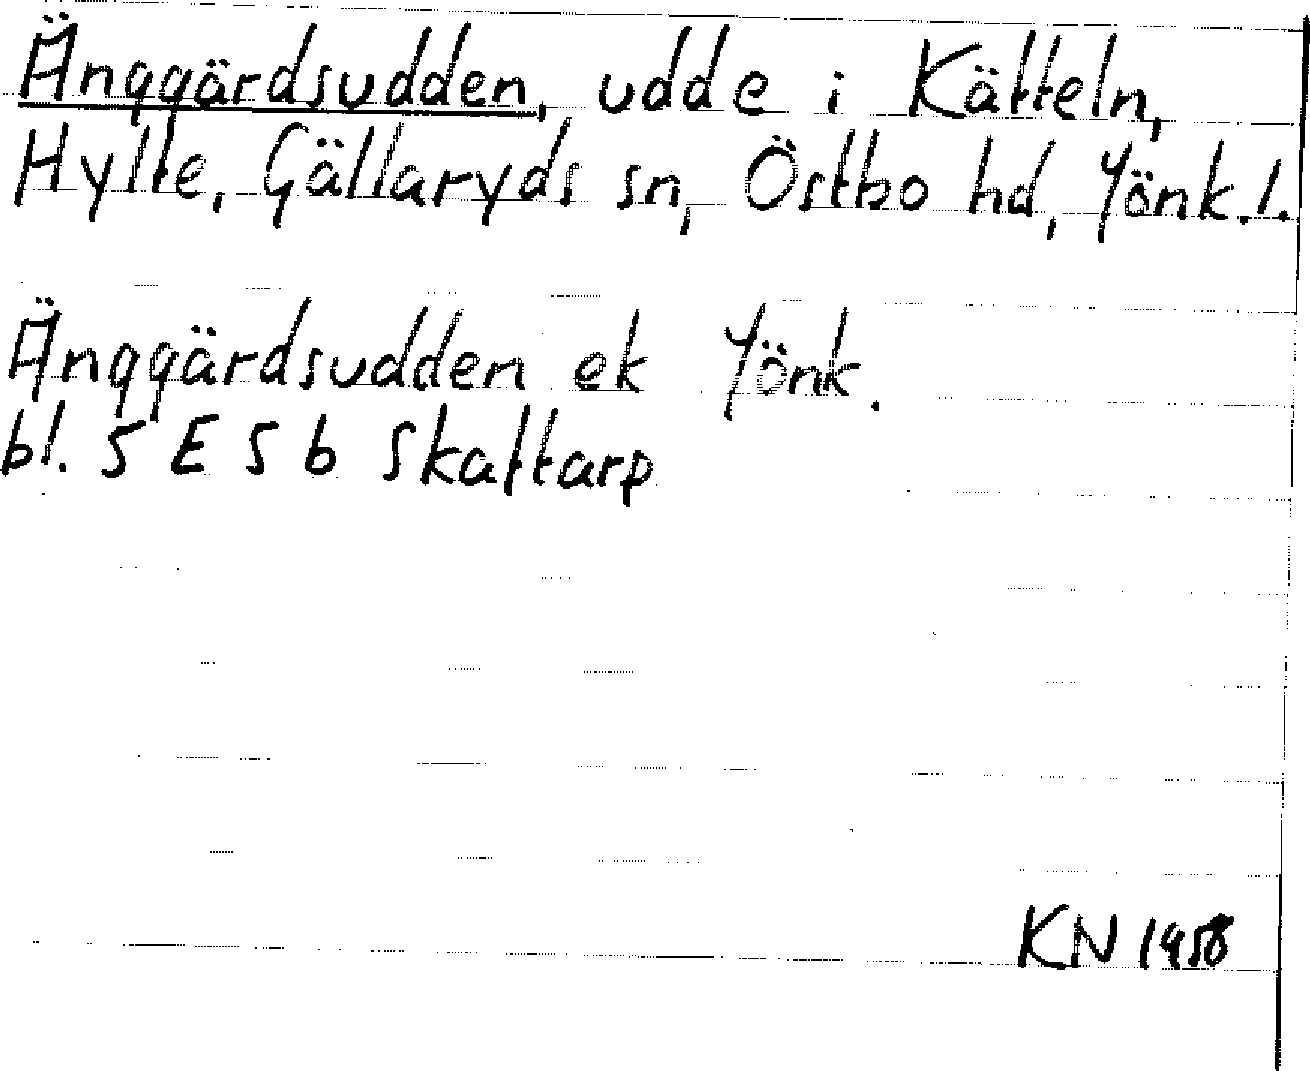 Änggärdsudden, udde i Kätteln,
Hylte, Gällaryds sn, Östbo hd, Jönk.l.
Änggärdsudden ek Jönk.
bl. 5 E 5 b Skattarp
KN 1958